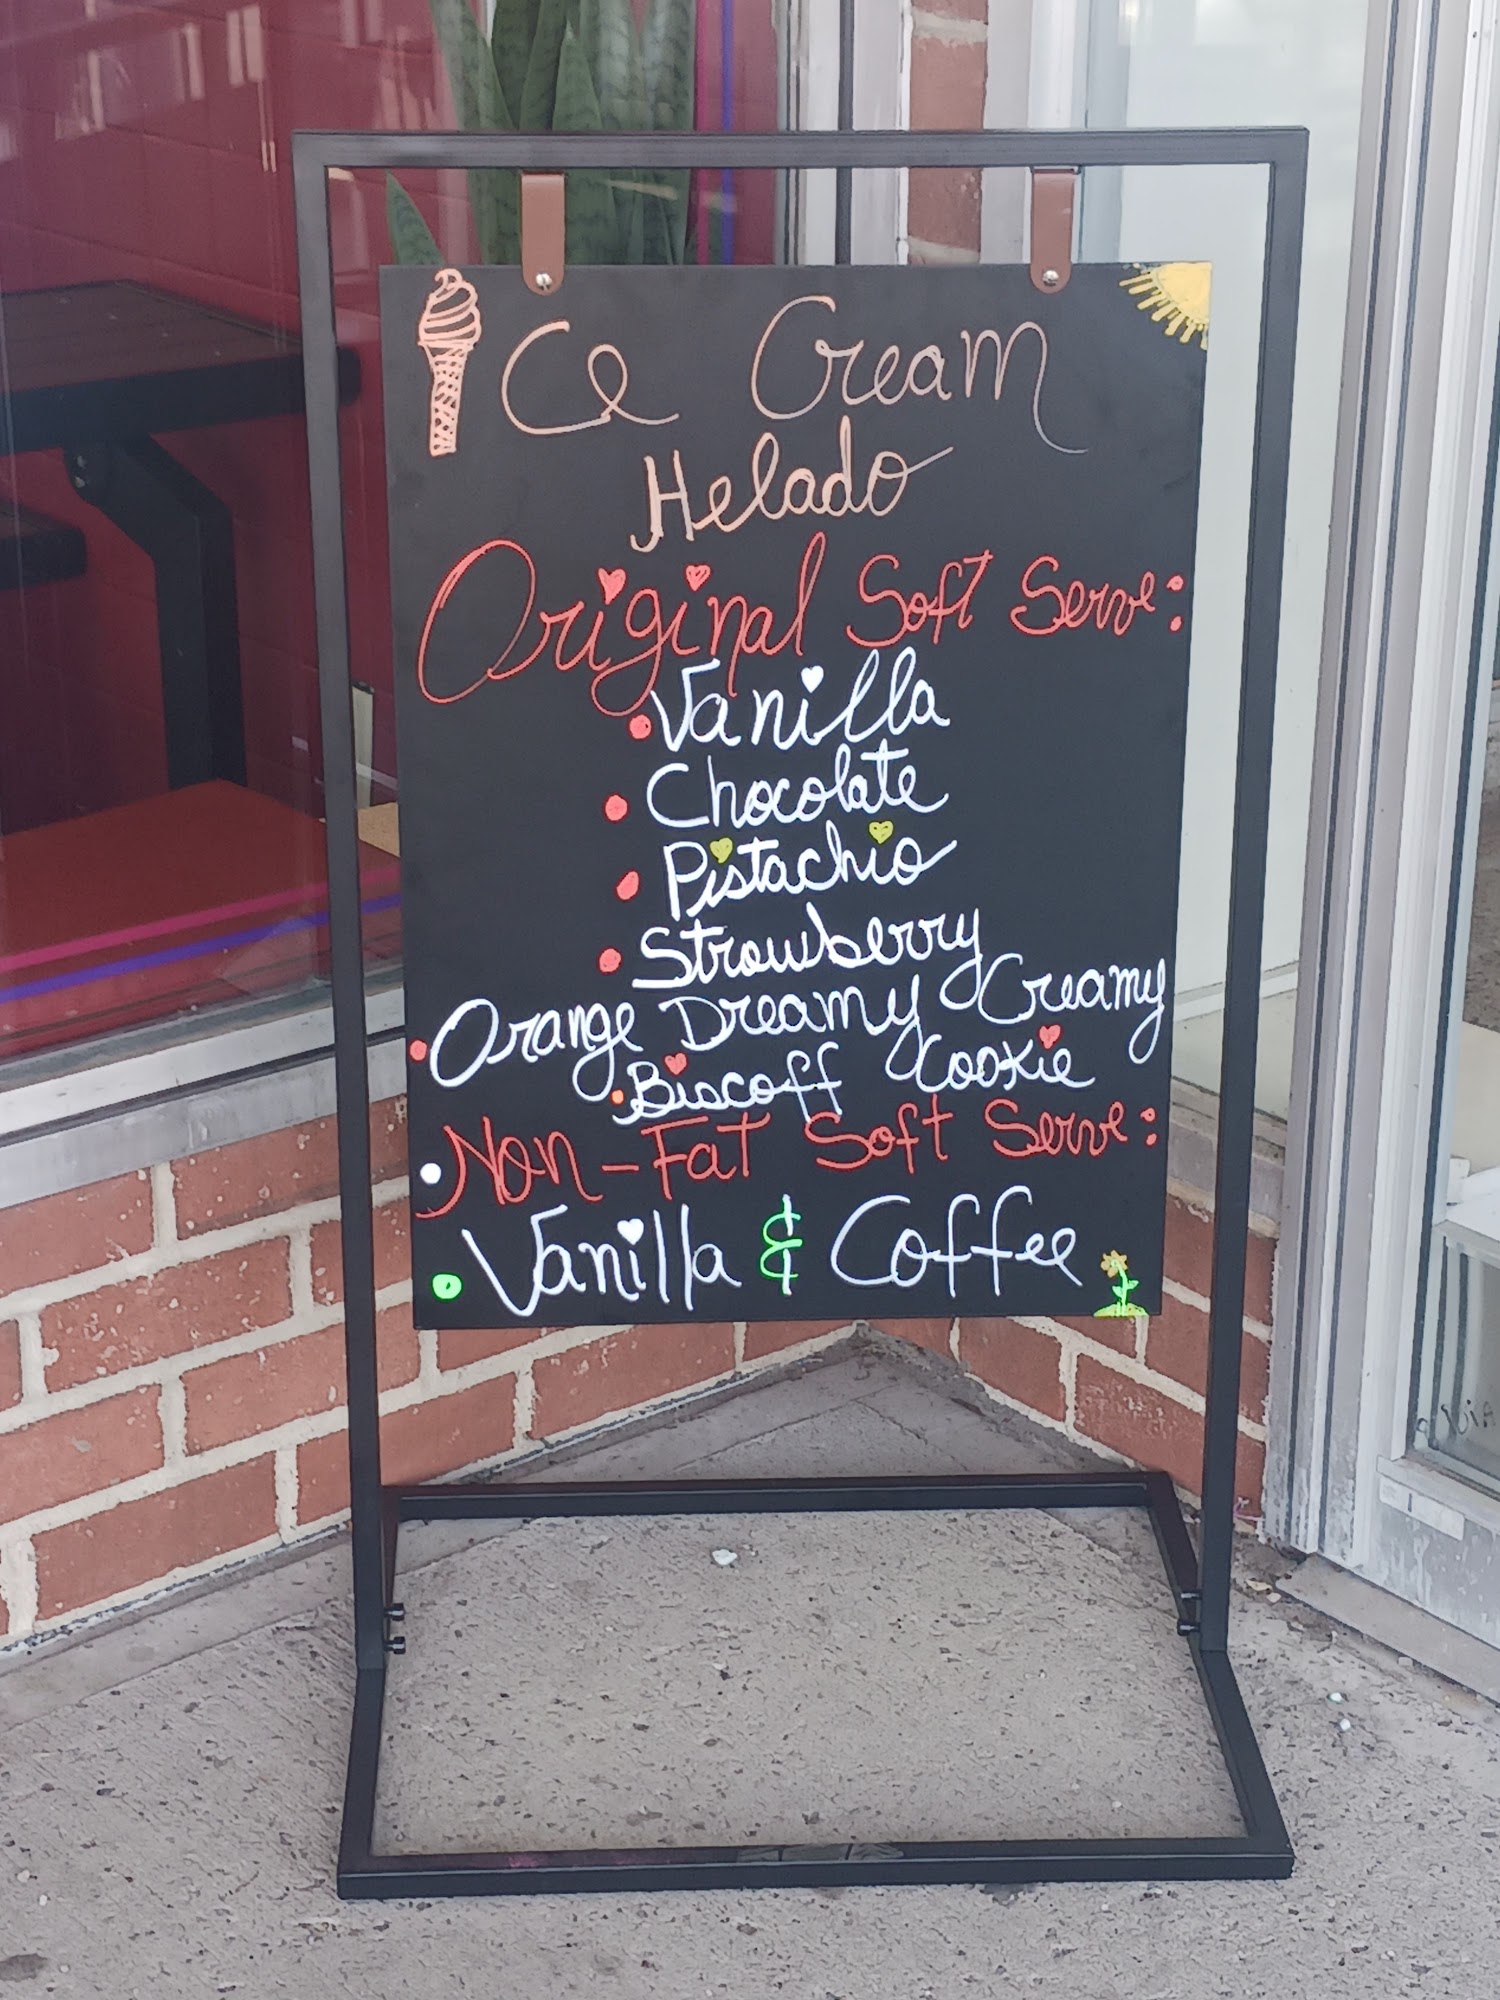 Ce Cream
Helado
Original Soft Serve:
• Vanilla
• Chocolate
• Pistachio
• Strawberry
• Orange Dreamy Creamy
• Biscoff Cookie
• Non-Fat Soft Serve:
• Vanilla & Coffee